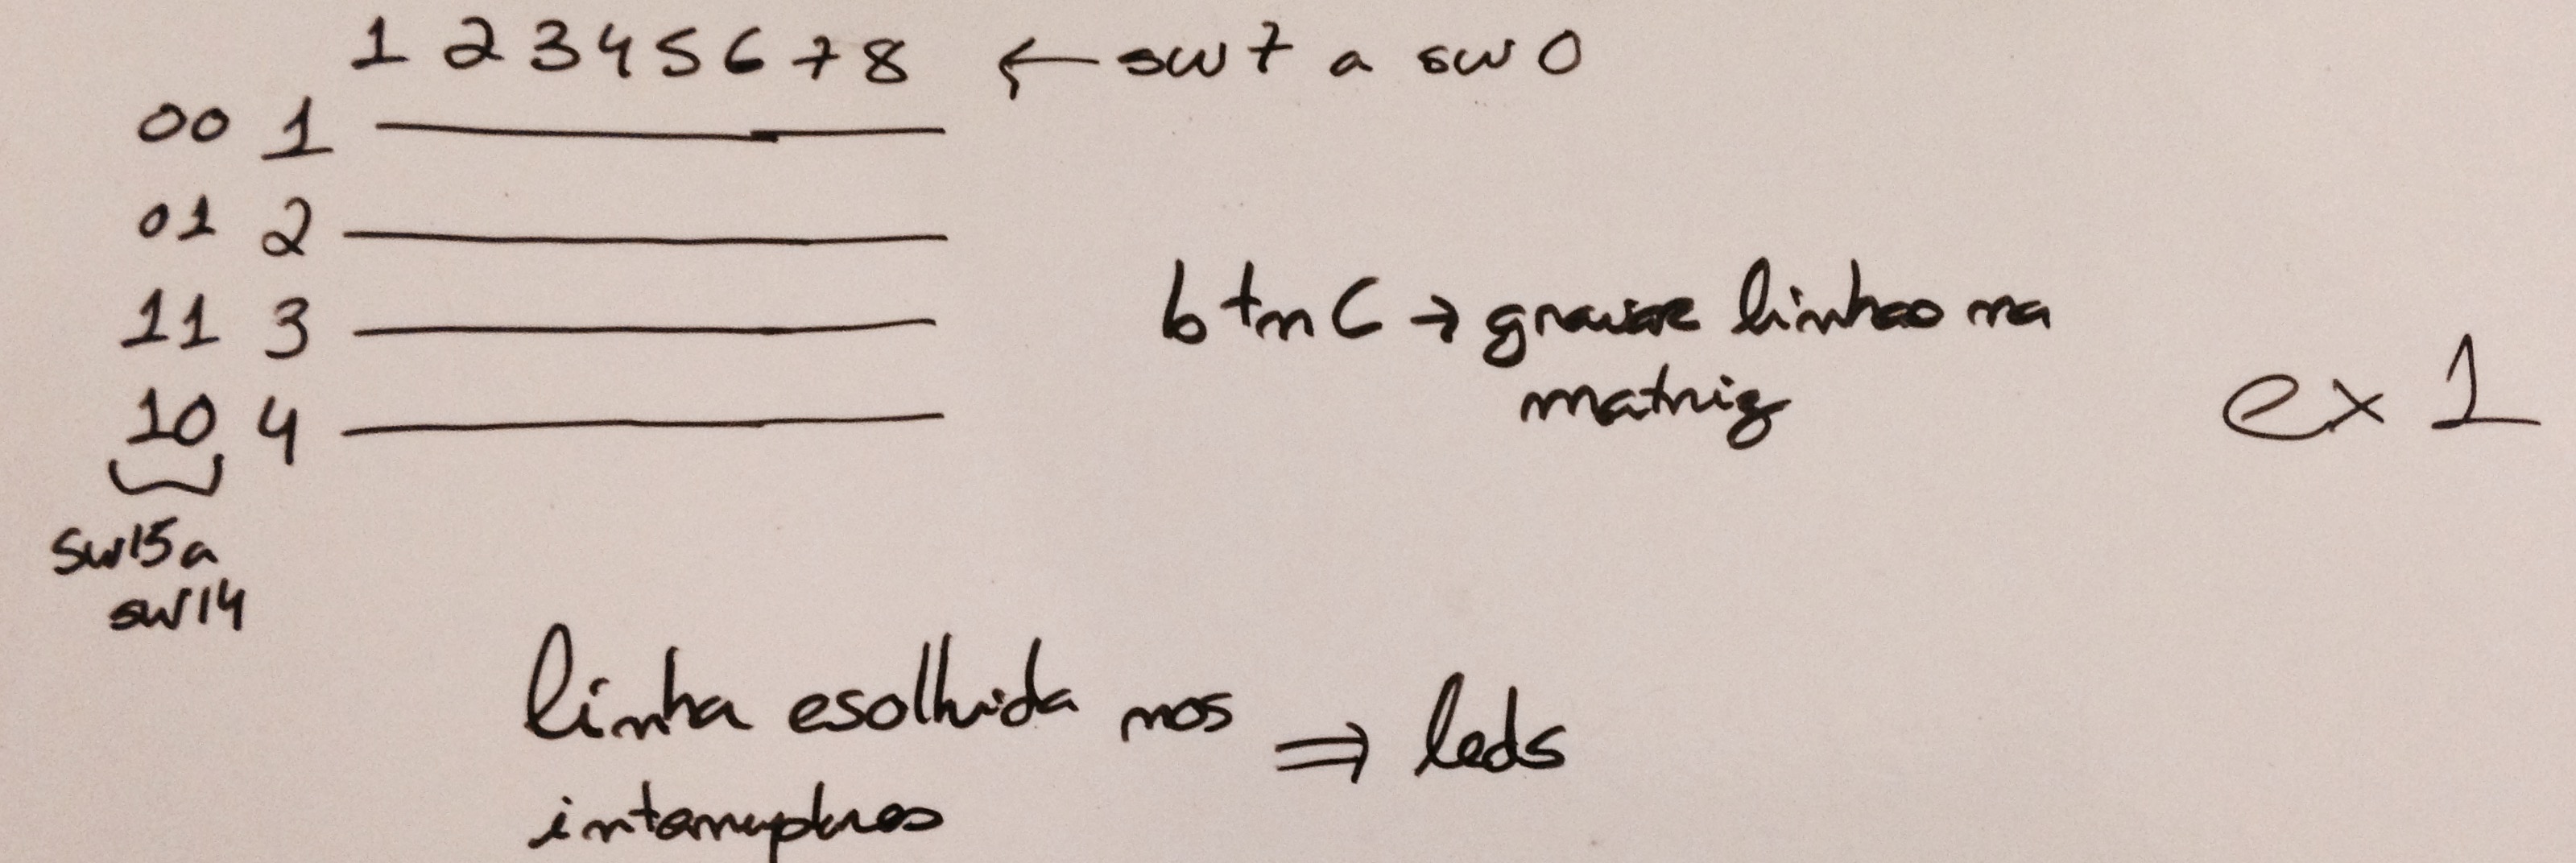 1 2 3 4 5 6 7 8 ← sw7 a sw0
00 1
01 2
11 3
10 4
sw15 a
sw14
btnC → gravar linhas na
matriz
ex 1
linha esolhida nos ⇒ leds
interruptores